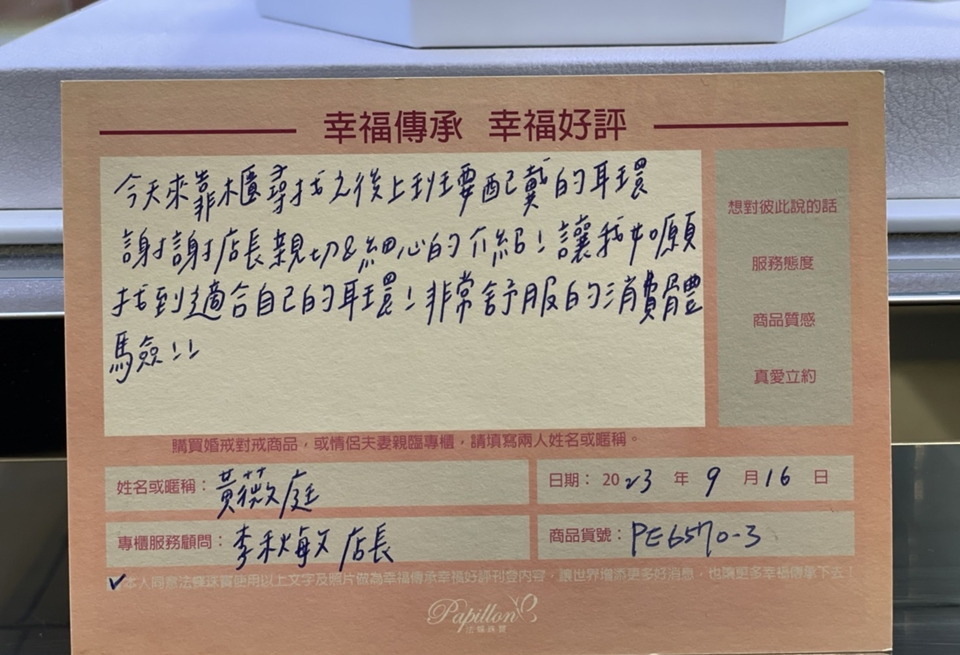 幸福傳承 幸福好評
今天來靠櫃尋找之後上班要配戴的耳環
謝謝店長親切&細心的介紹！讓我如願
找到適合自己的耳環！非常舒服的消費體
驗!!
想對彼此說的話
服務態度
商品質感
真愛立約
購買婚戒對戒商品，或情侶夫妻親臨專櫃，請填寫兩人姓名或暱稱。
姓名或暱稱：黃薇庭
日期： 2023 年 9 月 16 日
專櫃服務顧問：李秋敏 店長
商品貨號：PE6570-3
✓本人同意法蝶珠寶使用以上文字及照片做為幸福傳承幸福好評刊登內容，讓世界增添更多好消息，也讓更多幸福傳承下去！
Papillon
法蝶珠寶